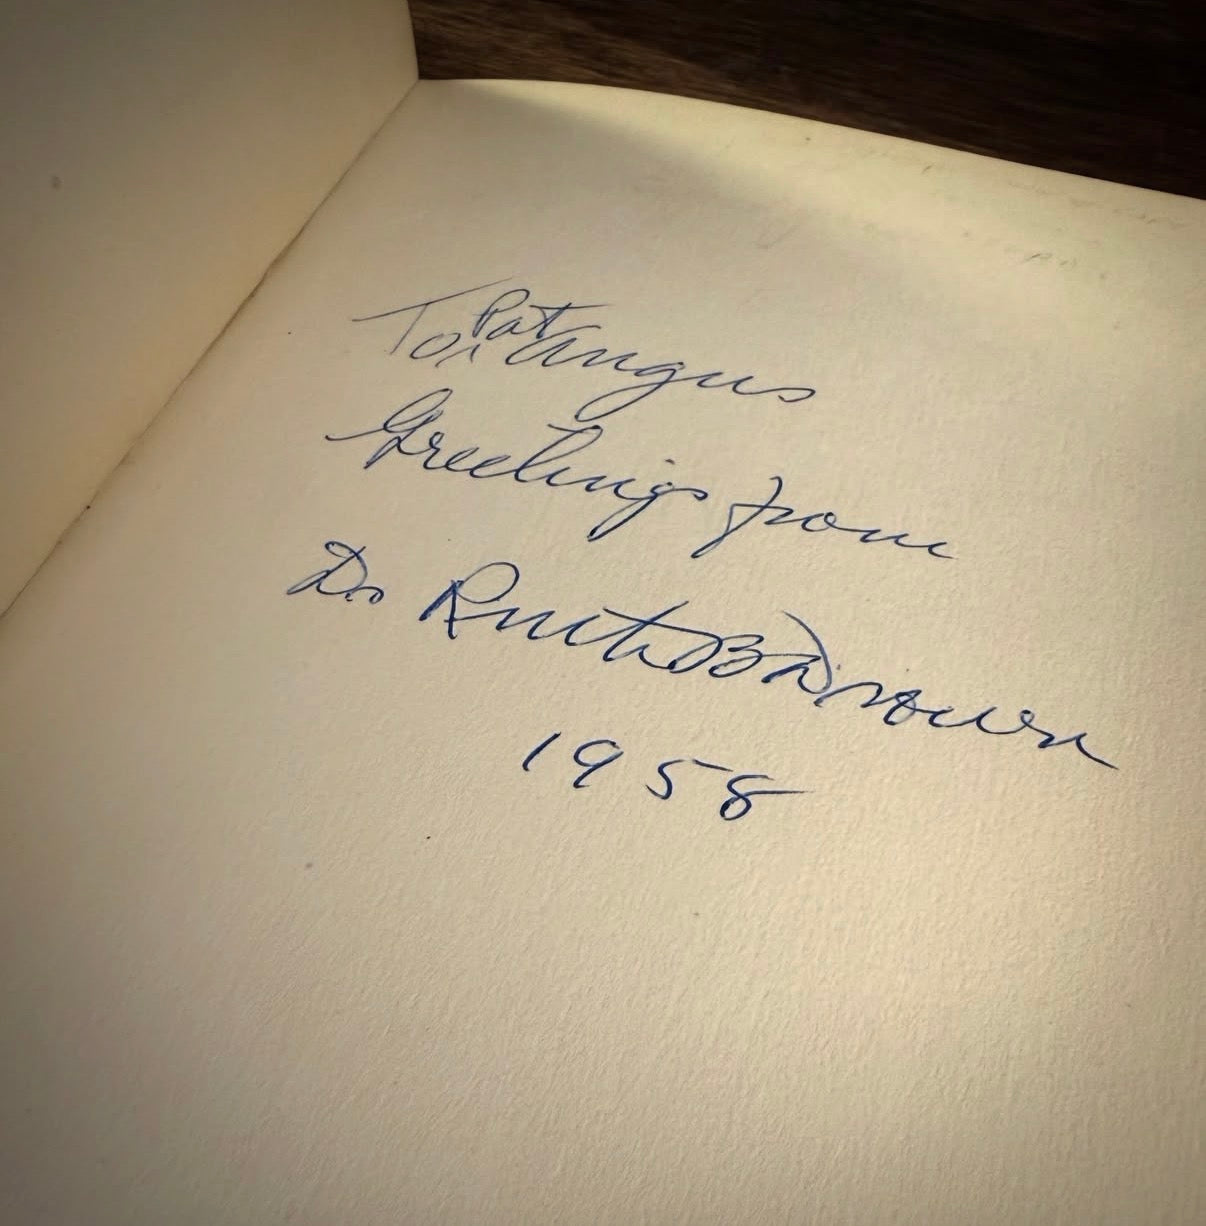 To Pat Angus
Greetings from
Dr Ruth B Drown
1958